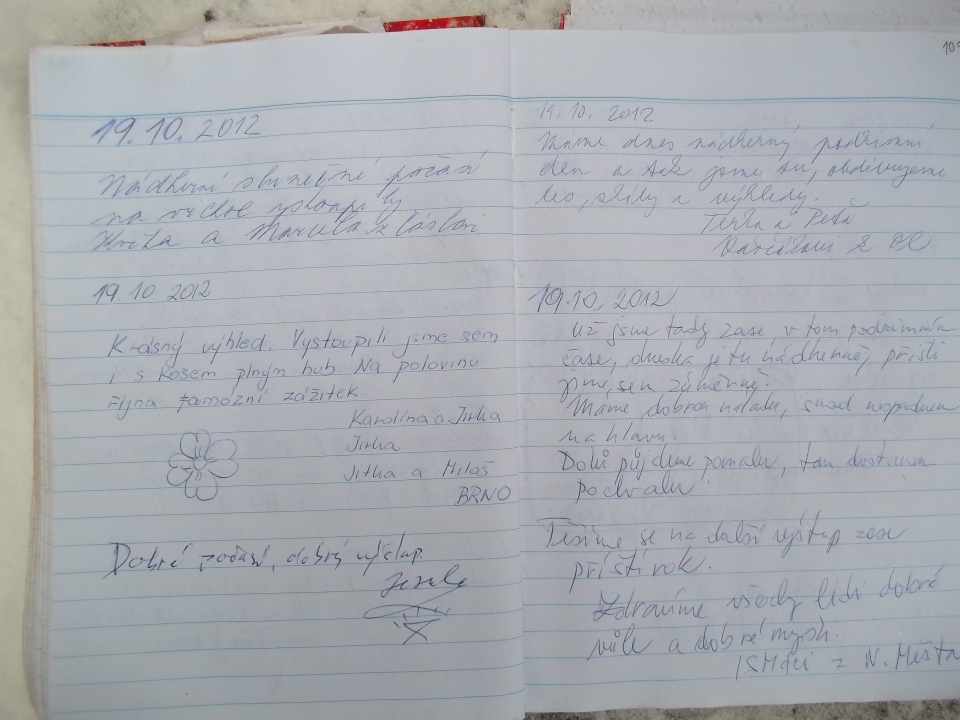 19.10.2012
Nádherné slunečné počasí
na
a Marcela z Čáslavi
19.10 2012
Krásný výhled. Vystoupili jsme sem
i s košem plným hub. Na polovinu
října famózní zážitek.
Karolína a Jirka
Jirka
Jitka a Miloš
BRNO
Dobré počasí, dobrý výšlap.
19.10.2012
Máme dnes nádherný podzimní
den a tak jsme tu, obdivujeme
les, skály a výhledy.
Terka a Péťa
19.10.2012
Už jsme tady zase, v tom podzimním
čase, dneska je tu nádherně, příště
Máme dobrou náladu, snad nespadnem
na hlavu.
Dolů půjdeme pomalu, tam dostanem
pochvalu
Těšíme se na další výstup zase
příští rok.
Zdravíme všechny lidi dobré
vůle a dobré mysli.
z N. Města
109